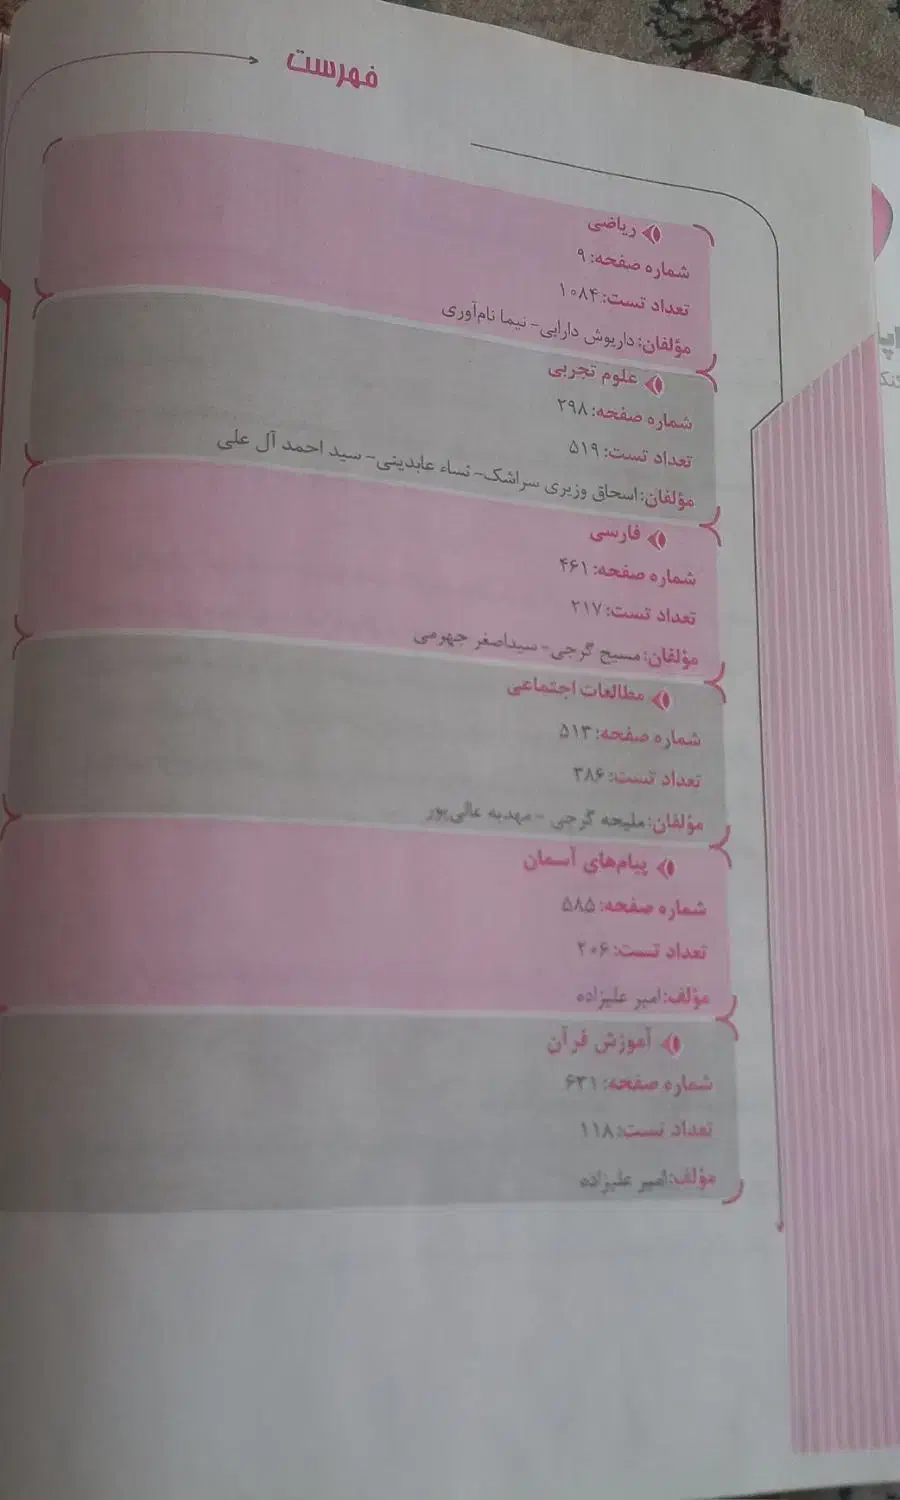 فهرست
ریاضی
شماره صفحه: ۹
تعداد تست: ۱۰۸۴
مؤلفان: داریوش دارابی- نیما نام‌آوری
علوم تجربی
شماره صفحه: ۲۹۸
تعداد تست: ۵۱۹
مؤلفان: اسحاق وزیری سراشک- نساء عابدینی- سید احمد آل علی
فارسی
شماره صفحه: ۴۶۱
تعداد تست: ۲۱۷
مؤلفان: مسیح گرجی- سیداصغر جهرمی
مطالعات اجتماعی
شماره صفحه: ۵۱۳
تعداد تست: ۳۸۶
مؤلفان: ملیحه گرجی - مهدیه عالی‌پور
پیام‌های آسمان
شماره صفحه: ۵۸۵
تعداد تست: ۲۰۶
مؤلف: امیر علیزاده
آموزش قرآن
شماره صفحه: ۶۳۱
تعداد تست: ۱۱۸
مؤلف: امیر علیزاده